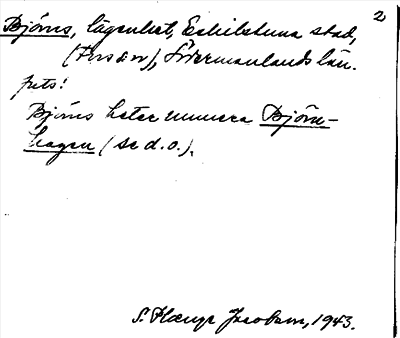 2
Björns, lägenhet, Eskilstuna stad,
(Fors sn), Södermanlands län.
pets:
Björns heter numera Björn-
hagen (se d. o.).
S. Hænge Jacobsen, 1943.